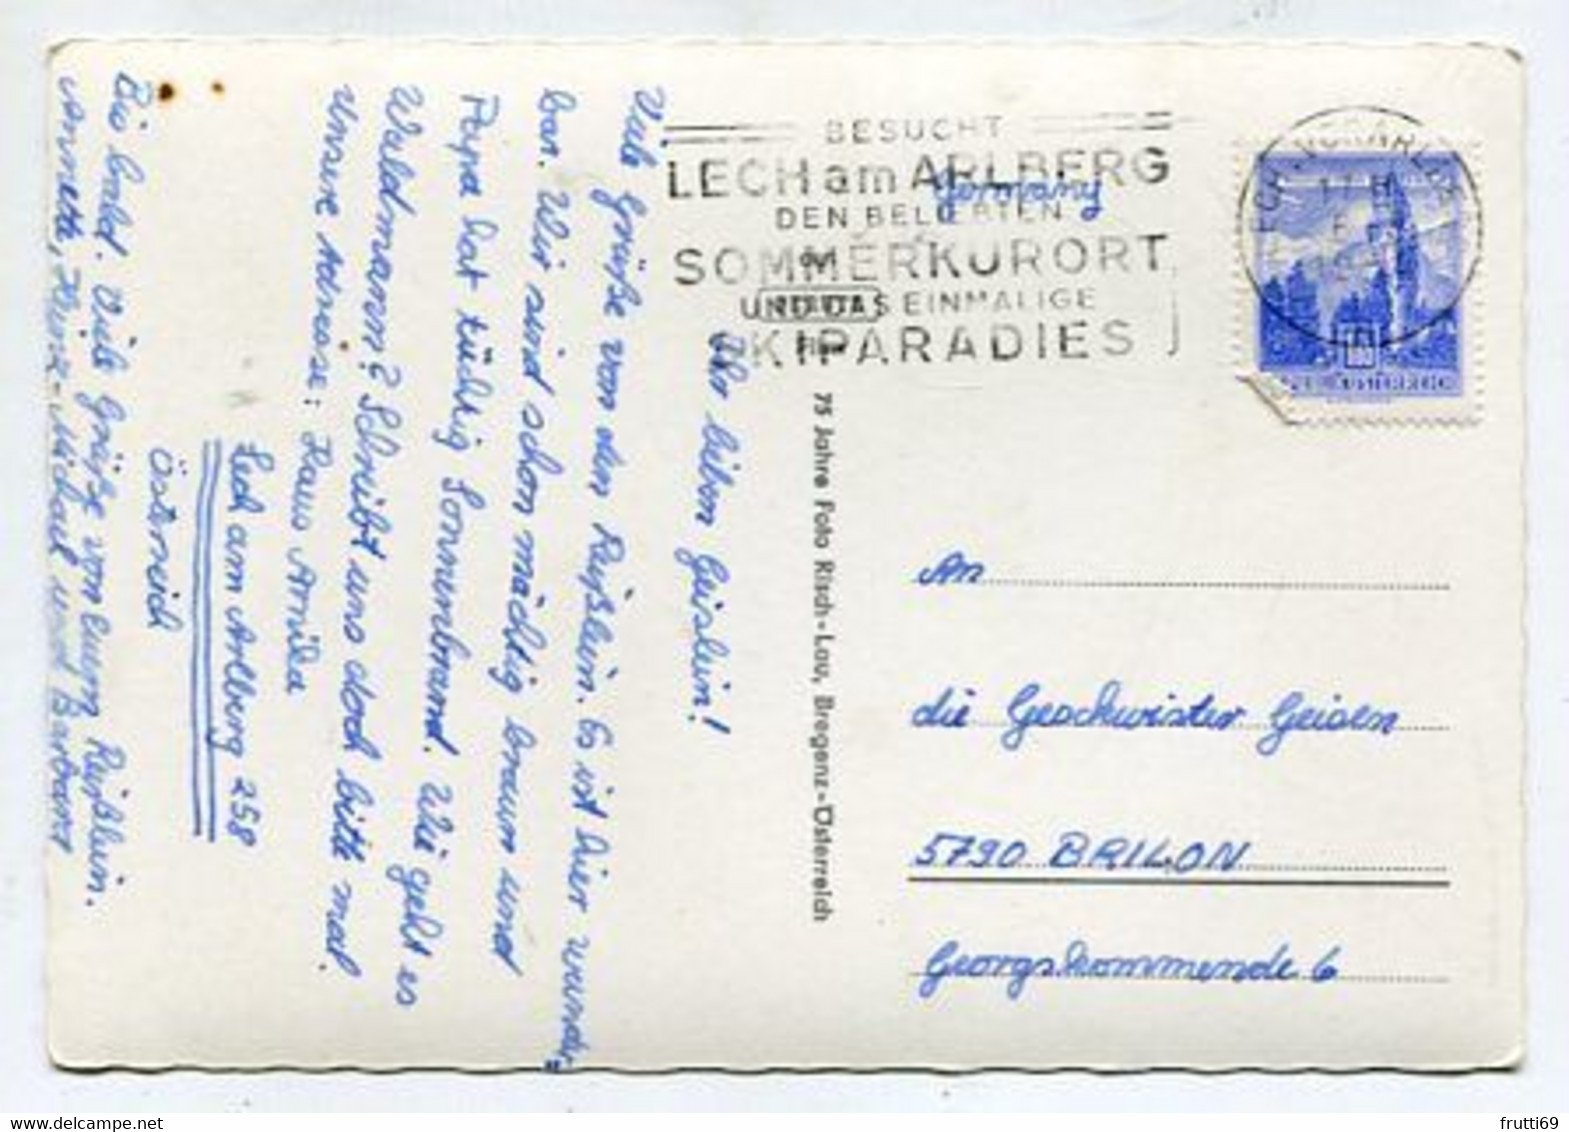 BESUCHT
LECH am ARLBERG
DEN BELIEBTEN
SOMMERKURORT
UND DAS EINMALIGE
SKIPARADIES
Ihr lieben Geislein!
Viele Grüße von den Reißlein. Es ist hier wunder-
bar. Wir sind schon mächtig braun und
Papa hat tüchtig Sonnenbrand. Wie geht es
Waldmann? Schreibt uns doch bitte mal.
Unsere Adresse: Haus Anita
Lech am Arlberg 258
Österreich
Bis bald. Viele Grüße von Euern Reißlein.
Annette, Heinz-Michael und Barbara
75 Jahre Foto Risch-Lau, Bregenz-Österreich
An
die Geschwister Geisen
5790 BRILON
Georgskommende 6
frutti69